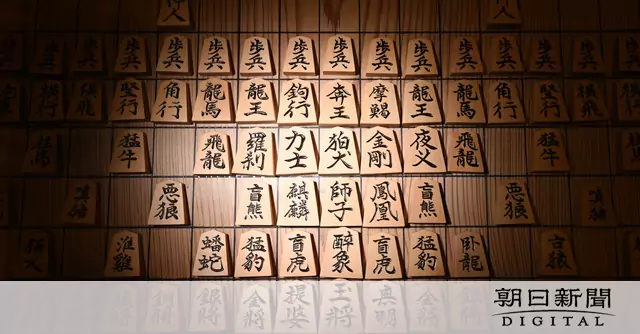 歩兵 歩兵 歩兵 歩兵 歩兵 歩兵 歩兵 歩兵 歩兵 歩兵 歩兵 歩兵 歩兵 歩兵
竪行 角行 龍馬 龍王 鉤行 奔王 摩羯 龍王 龍馬 角行 竪行
猛牛 飛龍 羅刹 力士 狛犬 金剛 夜叉 飛龍 猛牛
悪狼 盲熊 麒麟 師子 鳳凰 盲熊 悪狼
淮鶏 蟠蛇 猛豹 盲虎 酔象 盲虎 猛豹 臥龍 古猿
銀将 金将 提婆 王将 無明 金将
朝日新聞
DIGITAL